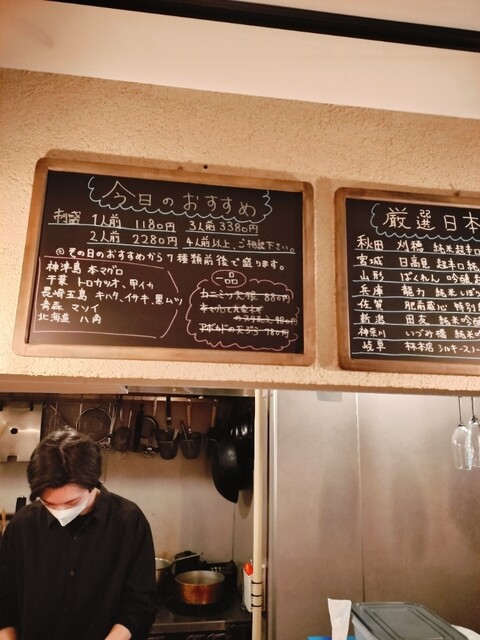 今日のおすすめ
刺盛 1人前 1180円 3人前 3380円
2人前 2280円 4人前以上、ご相談下さい。
◎その日のおすすめから7種類前後で盛ります。
神津島 本マグロ
千葉 トロカツオ、甲イカ
長崎五島 キハタ、イサキ、黒ムツ
青森 マゾイ
北海道 八角
一品
カニミソ大根 880円
780円
厳選日本
秋田 刈穂 純米超辛口
宮城 日高見 超辛口純
山形 ばくれん 吟醸超
兵庫 龍力 純米しぼり
佐賀 肥前蔵心 特別
新潟 田友 純米吟
神奈川 いづみ橋 純米吟
岐阜 林本店 シルキースノー